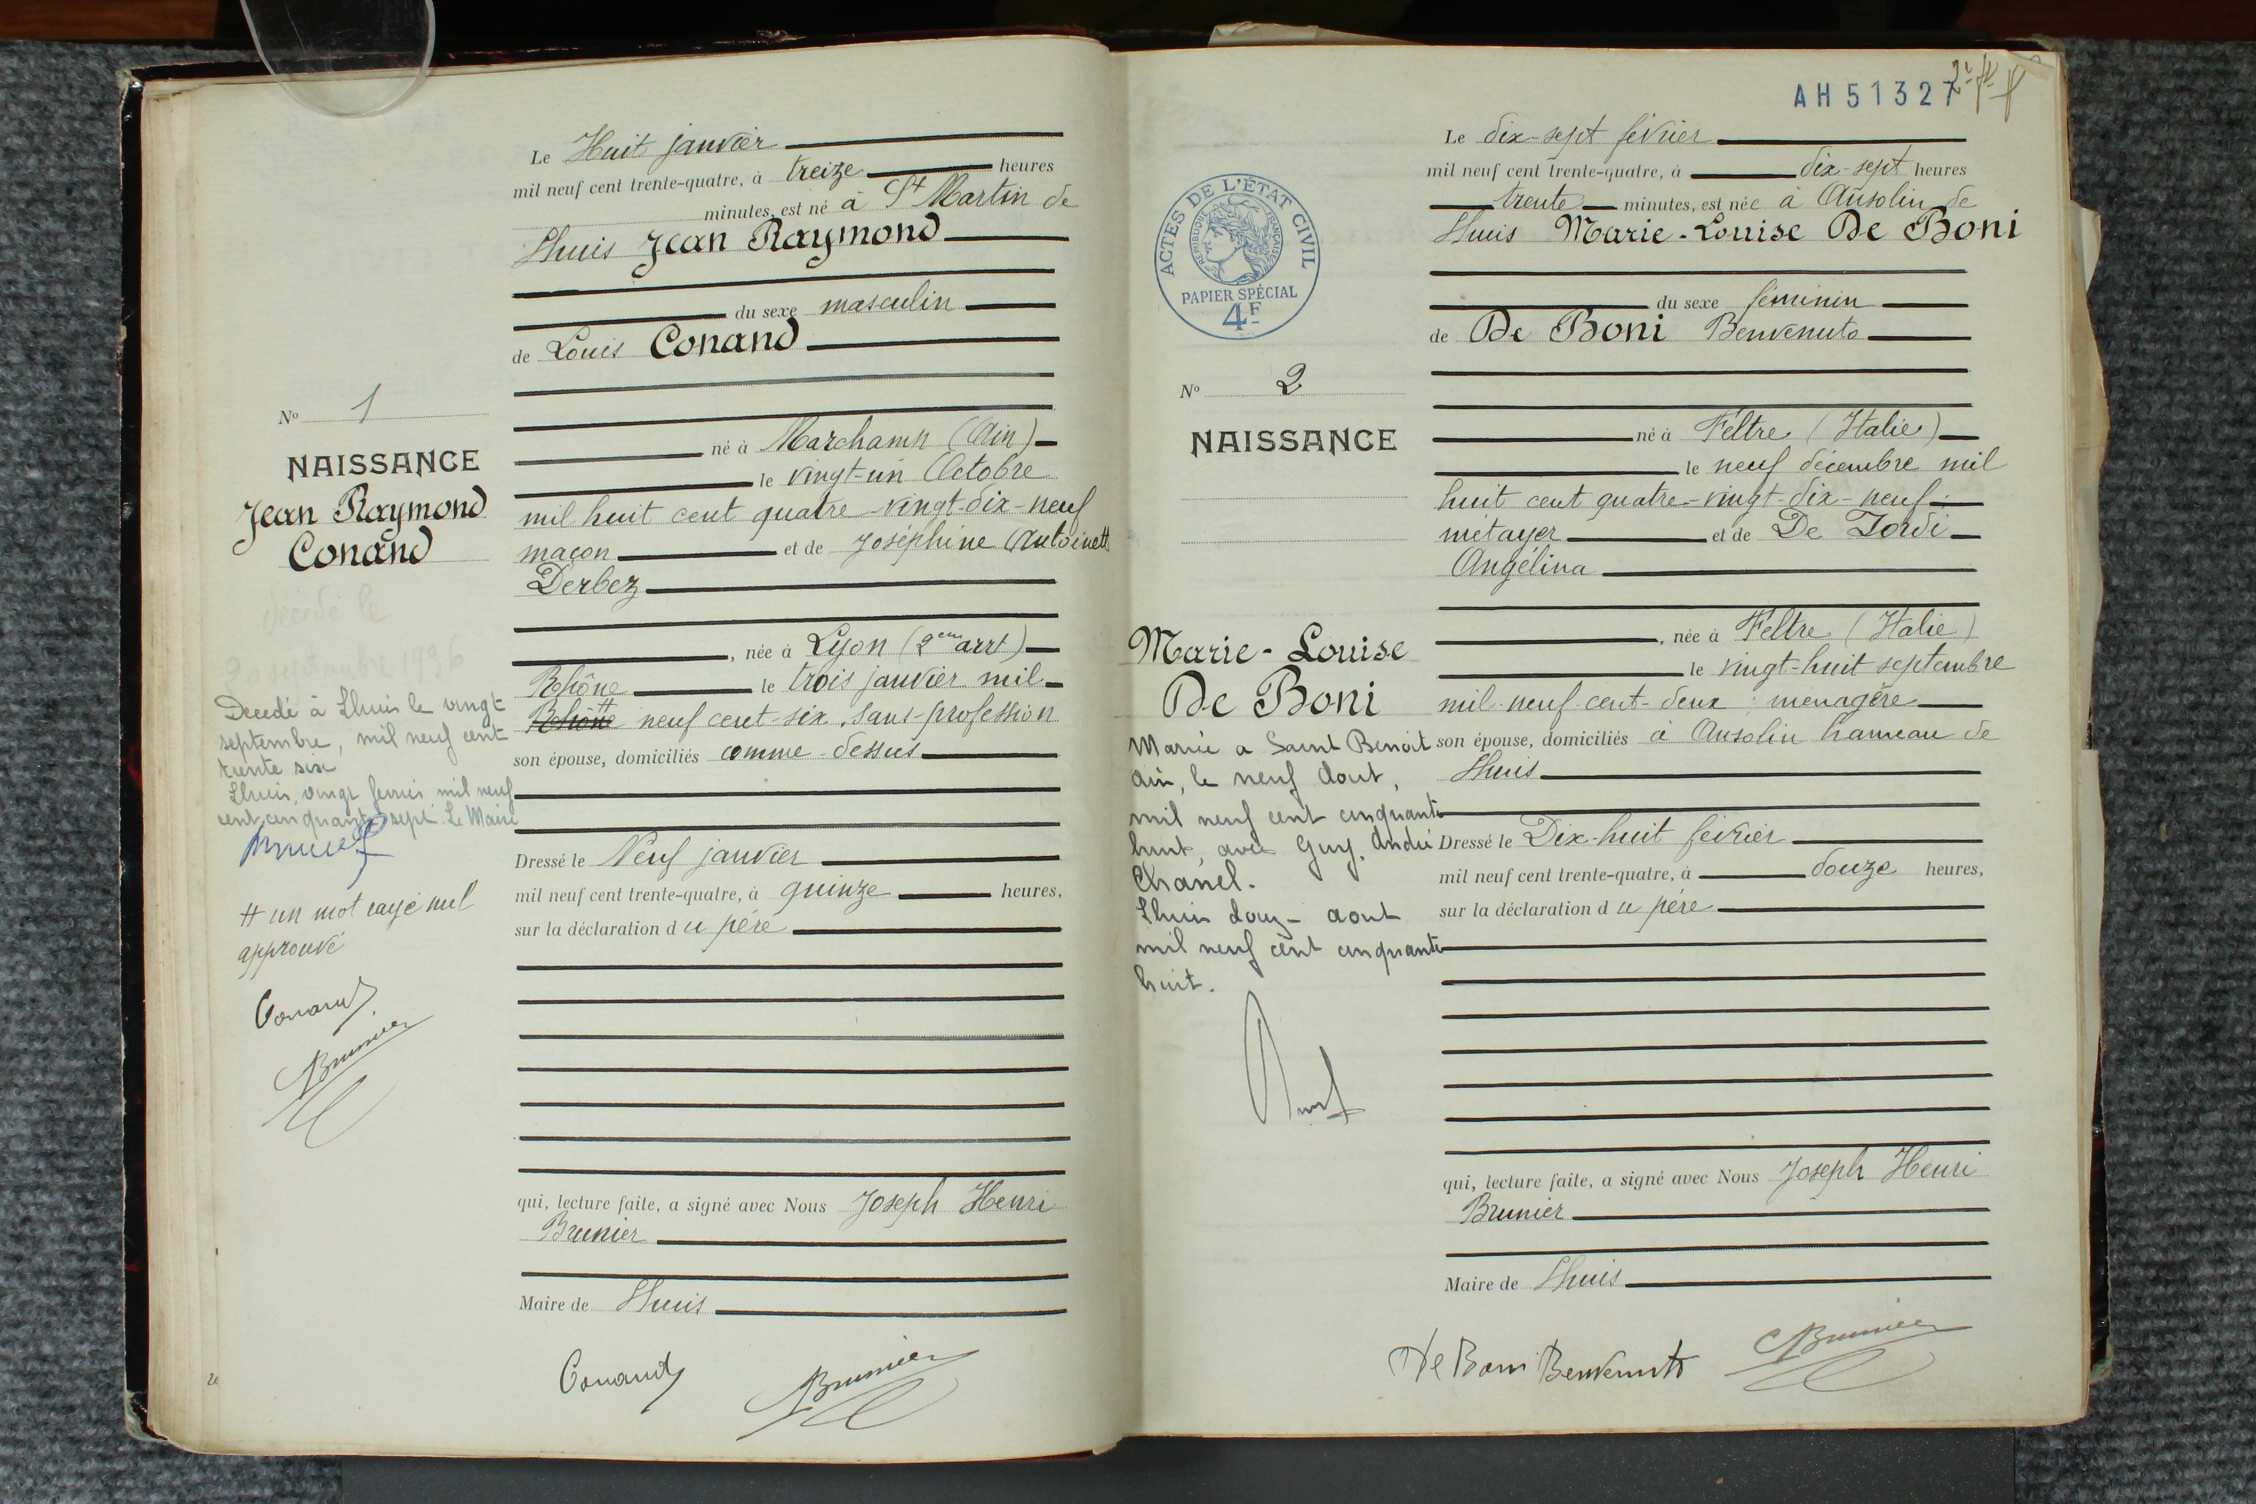 Le Huit janvier
mil neuf cent trente-quatre, à treize heures
minutes, est né à St Martin de
Lhuis Jean Raymond
du sexe masculin
de Louis Conand
né à Marchamp (Ain)
le vingt-un Octobre
mil huit cent quatre-vingt-dix-neuf
maçon et de Joséphine Antoinett
Derbez
, née à Lyon (2em arrt)
Rhône le trois janvier mil
neuf cent-six, sans-profession
son épouse, domiciliés comme-dessus
Dressé le Neuf janvier
mil neuf cent trente-quatre, à quinze heures,
sur la déclaration du père
qui, lecture faite, a signé avec Nous Joseph Henri
Brunier
Maire de Lhuis
Conand
Brunier
No 1
NAISSANCE
Jean Raymond
Conand
décédé le
20 septembre 1936
Decedé à Lhuis le vingt
septembre, mil neuf cent
trente six
Lhuis, vingt fevrier mil neuf
cent cinquante sept. Le Maire
# un mot rayé nul
approuvé
Conand
Brunier
AH51327
ACTES DE L'ÉTAT CIVIL
RÉPUBLIQUE FRANÇAISE
PAPIER SPÉCIAL
4F
No 2
NAISSANCE
Marie-Louise
De Boni
Mariée a Saint Benoit
Ain, le neuf Aout,
mil neuf cent cinquante
huit, avec Guy, André
Chanel.
Lhuis douze aout
mil neuf cent cinquante
huit.
Le dix-sept février
mil neuf cent trente-quatre, à dix-sept heures
trente minutes, est née à Ansolin de
Lhuis Marie-Louise De Boni
du sexe féminin
de De Boni Benvenuto
né à Feltre (Italie)
le neuf décembre mil
huit cent quatre-vingt-dix-neuf
métayer et de De Tordi
Angélina
, née à Feltre (Italie)
le vingt-huit septembre
mil-neuf-cent-deux, ménagère
son épouse, domiciliés à Ansolin hameau de
Lhuis
Dressé le Dix-huit février
mil neuf cent trente-quatre, à douze heures,
sur la déclaration du père
qui, lecture faite, a signé avec Nous Joseph Henri
Brunier
Maire de Lhuis
De Boni Benvenuto
Brunier